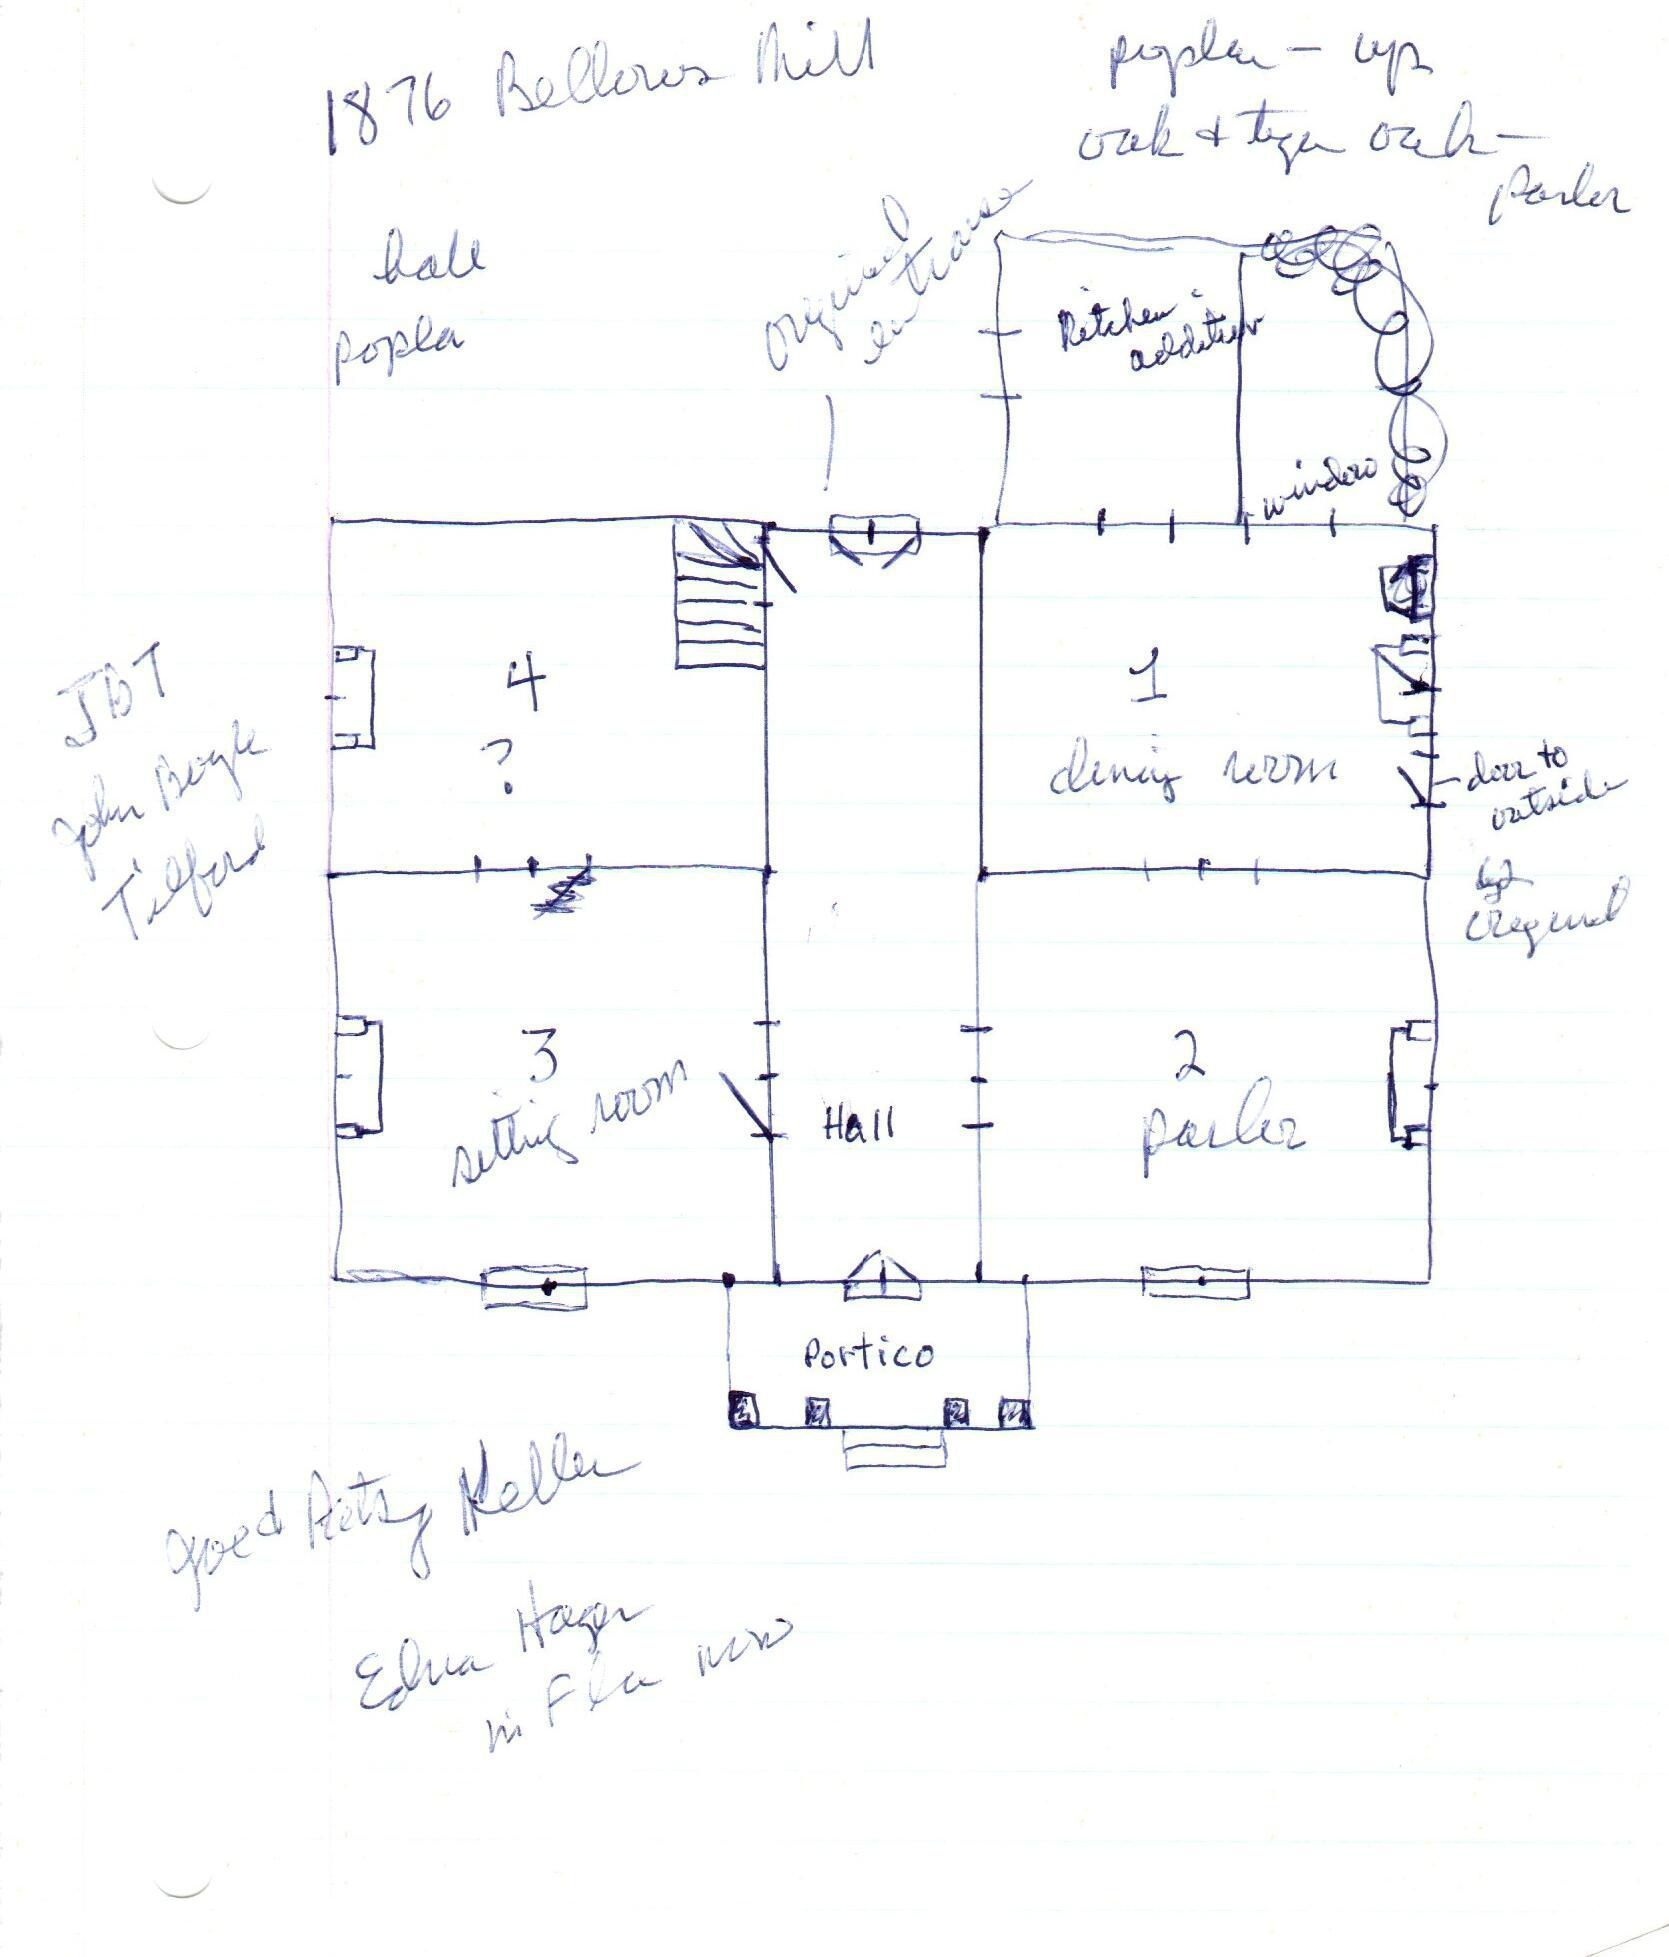 1876 Bellows Mill
popla - up
oak + tiger oak -
parlor
hall
popla
original
entrance
Kitchen
addition
window
JBT
John Bogle
Tilford
4
?
1
dining room
door to
outside
original
3
sitting room
Hall
2
parlor
Portico
Betsy Keller
Edna Hager
in Fla now